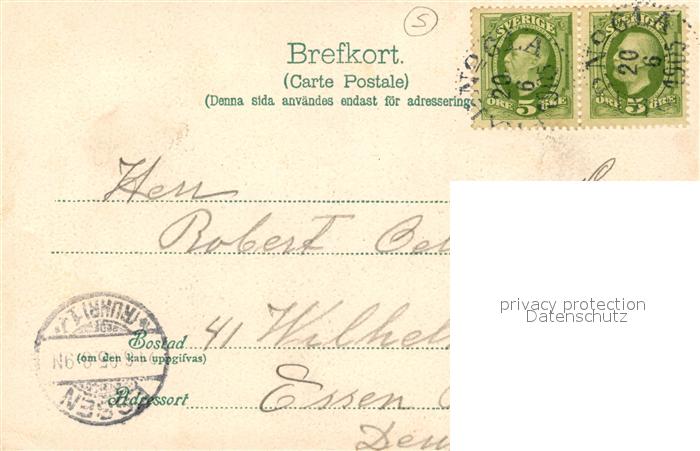 S
SVERIGE SVERIGE
NOGLA NOGLA
20 20
6 6
1905
ÖRE 5 ÖRE ÖRE 5 ÖRE
Brefkort.
(Carte Postale)
(Denna sida användes endast för adressering
Herr
Robert
privacy protection
Datenschutz
(RUHR) 1
Bostad 41 Wilhel
(om den kan uppgifvas)
ESSEN
Adressort Essen
Deu